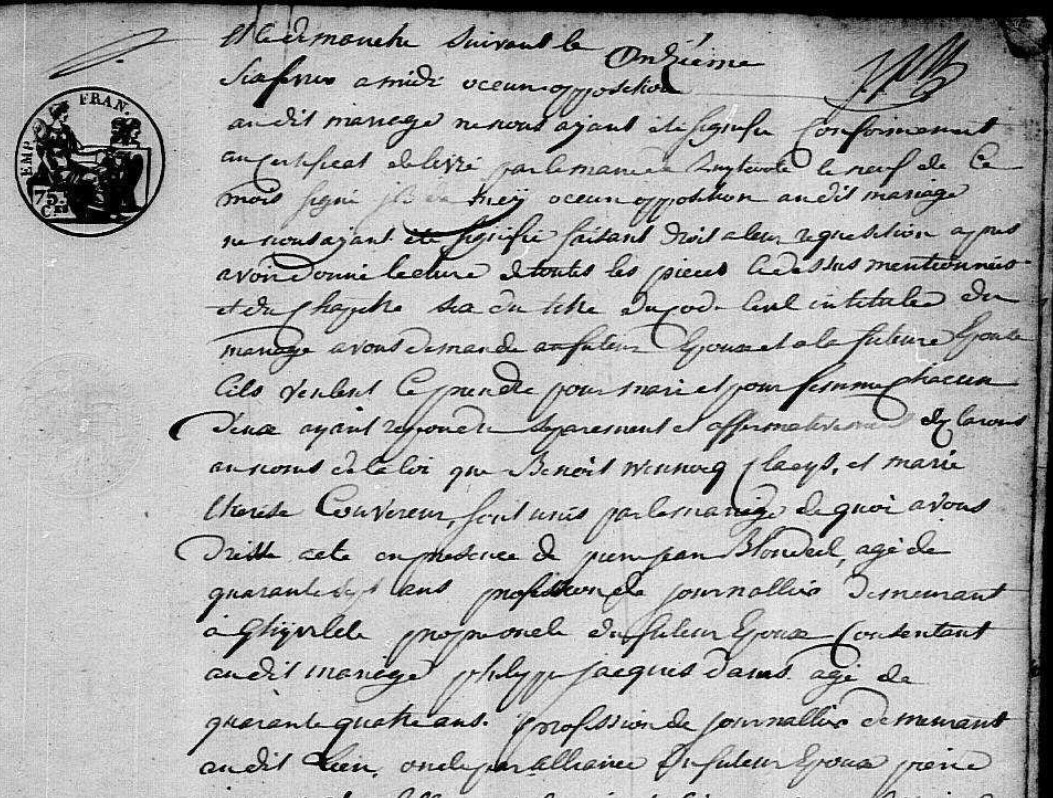 et le dimanche suivant le
onzième
a midi aucun opposition
EMP. FRAN.
75.
C.es
audit mariage ne nous ayant été signifie Conformement
au Certificat delivré par le maire de le neuf de Ce
mois signé aucun opposition audit mariage
ne nous ayant été signifie faisant droit a leur requesition apres
avoir donné lecture de toutes les pieces cidessus mentionnées
et du Chapitre six du titre du code civil intitulée du
mariage avons demande au futeur Epoux et a la futeure Epouse
cils veulent Ce prendre pour mari et pour femme chacun
deux ayant repondre separement et affirmativement declarons
au noms de la loi que Benoit winnocq Claeys, et marie
therese Couvereur, sont unis par le mariage de quoi avons
dresse acte en presence de pierre jean Blondeel, agé de
quarante sept ans profession de journallier demeurant
a Ghyvelde propre oncle du futeur Epoux Consentant
audit mariage philippe jacques dams agé de
quarante quatre ans profession de journallier demeurant
audit Lieu, oncle par alliance du futeur Epoux pierre